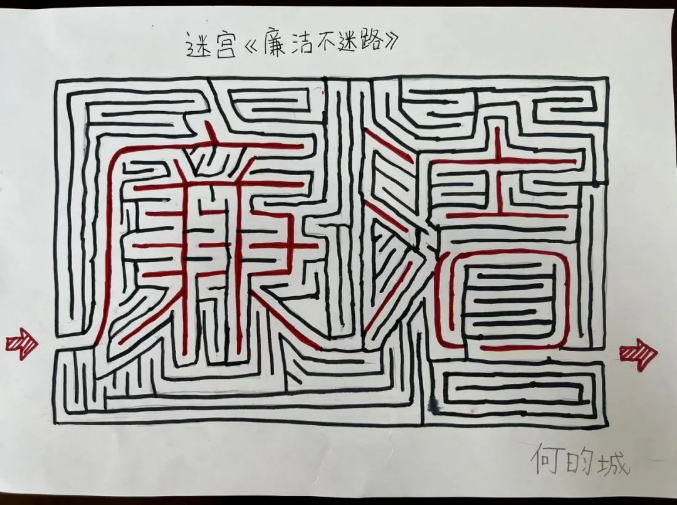 迷宫《廉洁不迷路》
廉洁
何昀城